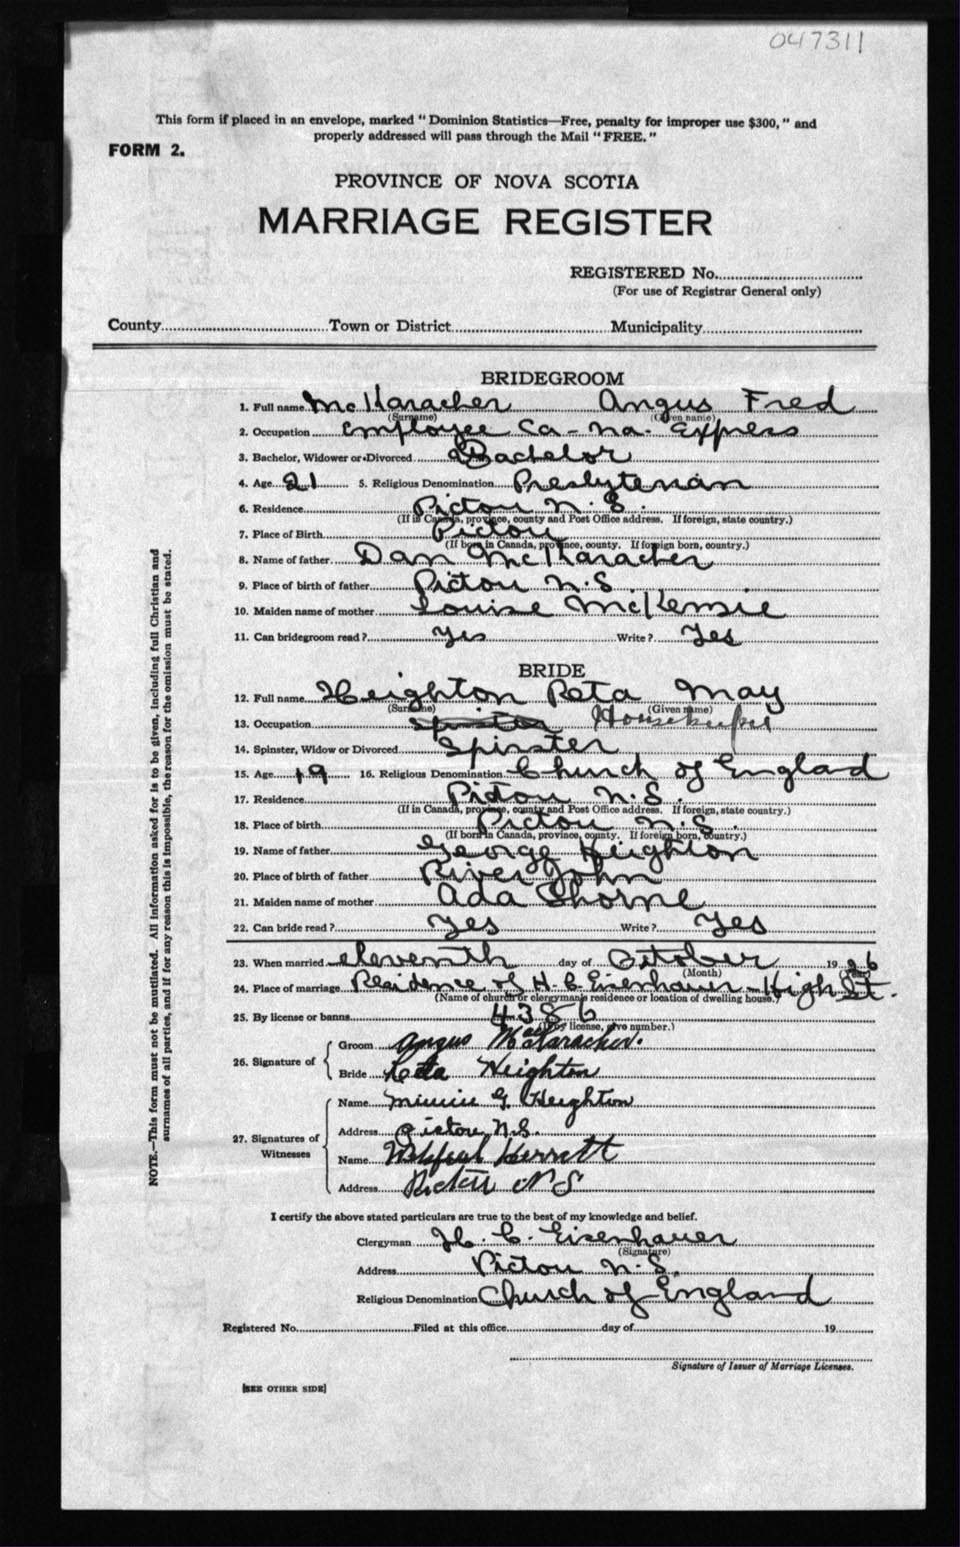 047311
This form if placed in an envelope, marked "Dominion Statistics—Free, penalty for improper use $300," and
properly addressed will pass through the Mail "FREE."
FORM 2.
PROVINCE OF NOVA SCOTIA
MARRIAGE REGISTER
REGISTERED No.
(For use of Registrar General only)
County Town or District Municipality
BRIDEGROOM
1. Full name McKaracher Angus Fred
(Surname) (Given name)
2. Occupation Employee Ca-Na. Express
3. Bachelor, Widower or Divorced Bachelor
4. Age 21 5. Religious Denomination Presbyterian
6. Residence Pictou N.S.
(If in Canada, province, county and Post Office address. If foreign, state country.)
7. Place of Birth Pictou
(If born in Canada, province, county. If foreign born, country.)
8. Name of father Dan McKaracher
9. Place of birth of father Pictou N.S.
10. Maiden name of mother Louise McKensie
11. Can bridegroom read? Yes Write? Yes
BRIDE
12. Full name Heighton Reta May
(Surname) (Given name)
13. Occupation Spinster Housekeeper
14. Spinster, Widow or Divorced Spinster
15. Age 19 16. Religious Denomination Church of England
17. Residence Pictou N.S.
(If in Canada, province, county and Post Office address. If foreign, state country.)
18. Place of birth Pictou N.S.
(If born in Canada, province, county. If foreign born, country.)
19. Name of father George Heighton
20. Place of birth of father River John
21. Maiden name of mother Ada Thorne
22. Can bride read? Yes Write? Yes
23. When married eleventh day of October 1926
(Month) (Year)
24. Place of marriage Residence of H. C. Eisenhauer - High St.
(Name of church or clergyman's residence or location of dwelling house.)
25. By license or banns 4386
(If by license, give number.)
26. Signature of
Groom Angus MacKaracher.
Bride Reta Heighton
27. Signatures of Witnesses
Name Minnie G. Heighton
Address Pictou N.S.
Name Herrott
Address Pictou N S
I certify the above stated particulars are true to the best of my knowledge and belief.
Clergyman H. C. Eisenhauer
(Signature)
Address Pictou N.S.
Religious Denomination Church of England
Registered No. Filed at this office day of 19
Signature of Issuer of Marriage Licenses.
[SEE OTHER SIDE]
NOTE.—This form must not be mutilated. All information asked for is to be given, including full Christian and
surnames of all parties, and if for any reason this is impossible, the reason for the omission must be stated.